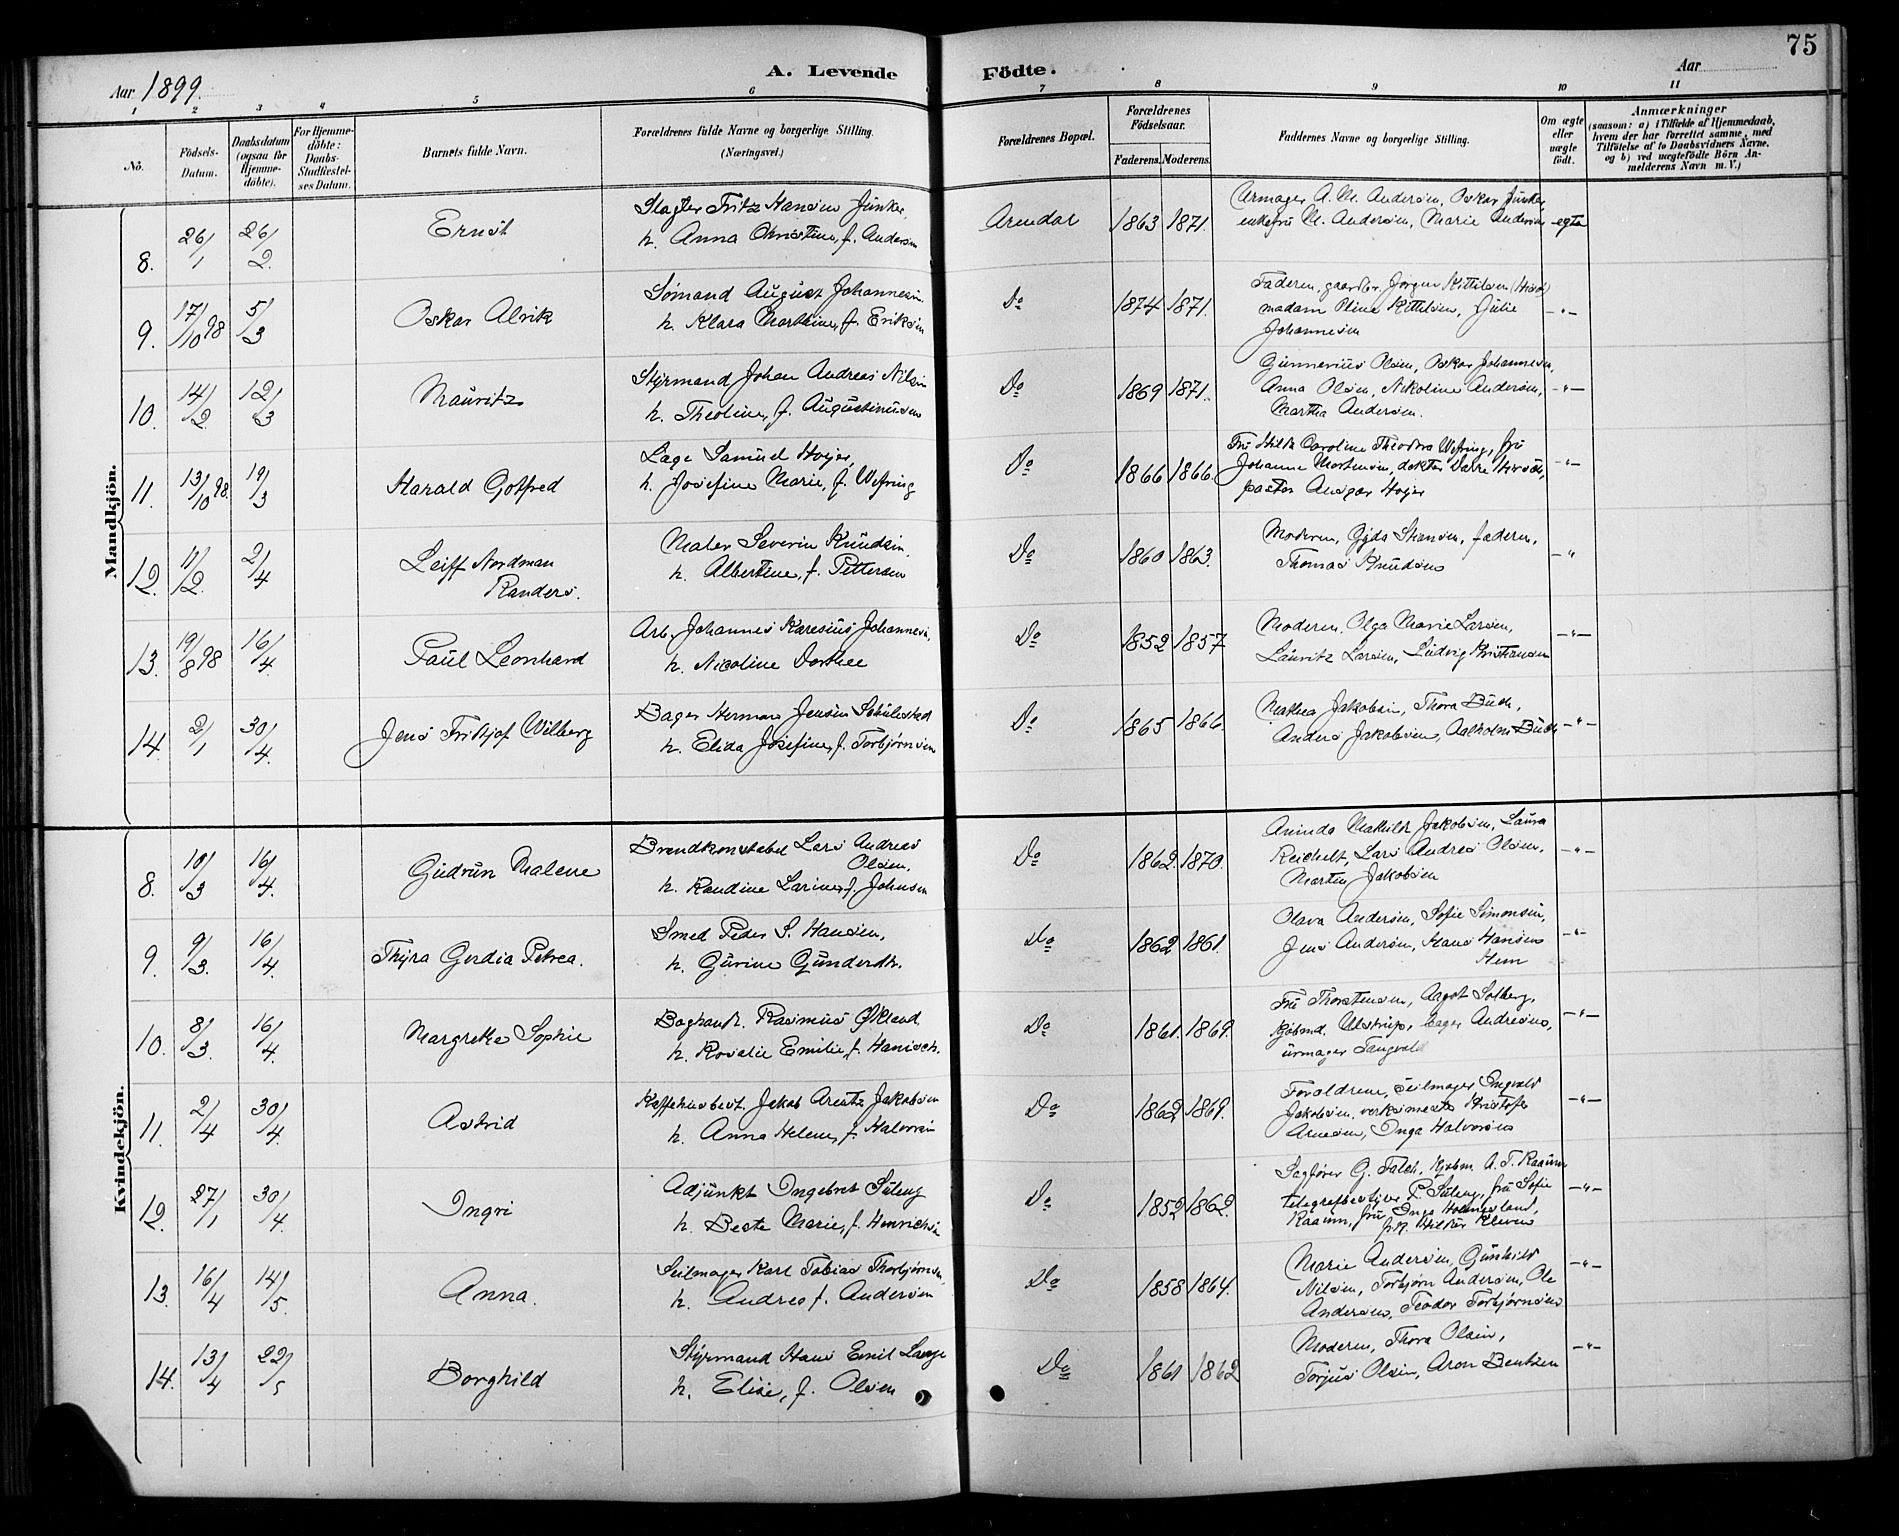 75
Aar 1899. A. Levende Födte. Aar
1 2 3 4 5 6 7 8 9 10 11
No. Födsels-Datum. Daabsdatum (ogsaa for Hjemmedöbte). For Hjemmedöbte: Daabs-Stadfæstelses Datum. Barnets fulde Navn. Forældrenes fulde Navne og borgerlige Stilling. (Næringsvei.) Forældrenes Bopæl. Forældrenes Födselsaar. Faderens. Moderens. Faddernes Navne og borgerlige Stilling. Om ægte eller uægte født. Anmærkninger (saasom: a) i Tilfælde af Hjemmedaab, hvem der har forrettet samme, med Tilföielse af to Daabsvidners Navne, og b) ved uægtefödte Börn Anmelderens Navn m. V.)
Mandkjön.
8. 26/1 26/2 Ernst Slagter Fritz Hansen Junker, Arendal 1863 1871. Urmager A. M. Andersen, Oskar Junker, ægte
h. Anna Christine, f. Andersen enkefru M. Andersen, Marie Andersen
9. 17/10 98 5/3 Oskar Alvik Sömand August Johannesen, Do 1874 1871. Faderen, gaardbr. Jørgen Kittelsen
h. Klara Marthine, f. Eriksen madam Oline Kittelsen, Julie
Johannesen
10. 14/2 12/3 Mauritz Styrmand Johan Andreas Nilsen Do 1869 1871. Gunnerius Olsen, Oskar Johannesen,
h. Theoline, f. Augustinussen Anna Olsen, Nikoline Andersen,
Martha Andersen.
11. 13/10 98. 19/3 Harald Gotfred Læge Samuel Høyer, Do 1866 1866. Fru Hilda Caroline Theodora Wefring, fru
h. Josefine Marie, f. Wefring Johanne Mortensen, doktor
pastor Ansgar Høyer
12. 11/2. 2/4 Leiff Nordman Maler Severin Knudsen, Do 1860 1863. Moderen, Gyda Hansen, faderen,
Randers. h. Albertine, f. Pettersen Thomas Knudsen
13. 19/8 98 16/4. Paul Leonhard Arb. Johannes Karesius Johannesen, Do 1852 1857 Moderen, Olga Marie Larsen,
h. Nicoline Dorthee Lauritz Larsen, Ludvig Kristiansen
14. 2/1 30/4. Jens Fritjof Wilberg Bager Herman Jensen Schulestad Do 1865 1866. Mathea Jakobsen, Thora Buch,
h. Elida Josefine, f. Torbjørnsen Anders Jakobsen, Aalholm Buch
Kvindekjön.
8. 10/3 16/4. Gudrun Malene Brandkonstabel Lars Andreas Do 1862. 1870. Aninda Mathilde Jakobsen, Laura
Olsen, Reichelt, Lars Andres Olsen,
h. Randine Larine, f. Johnsen Martin Jakobsen
9. 9/3. 16/4. Thyra Gerdia Petrea. Smed Peder S. Hansen, Do 1862 1861. Olava Andersen, Sofie Simonsen,
h. Gurine Gunderdtr. Jens Andersen, Hans Hansen
Hem
10. 8/3. 16/4. Margrethe Sophie Boghandl. Rasmus Økland Do 1861. 1869. Fru Thorstensen, Aagot Solberg,
h. Rosalie Emilie, f. Hanisch. kjøbmd. Ulstrup, bager Andresen,
urmager Tangvald
11. 2/4 30/4. Astrid Kaffehusbest. Jakob Arentz Jakobsen Do 1862 1869. Forældrene, seilmager Ingvald
h. Anna Helene, f. Halvorsen Jakobsen, verksmester Kristofer
Arnesen, Inga Halvorsen
12. 27/1 30/4. Ingri Adjunkt Ingebret Suleng Do 1852 1862. Sagfører G. Falch, kjøbm. A. T. Raaum
h. Beate Marie, f. Henrichsen telegrafbestyrer P. Suleng, fru Sofie
Raaum, fru Inga Holmesland,
frk. Hilda Kleven
13. 16/4 14/5. Anna. Seilmager Karl Tobias Thorbjørnsen, Do 1858 1864. Marie Andersen, Gunhild
h. Andrea f. Andersen Nilsen, Torbjørn Andersen, Ole
Andersen, Teodor Torbjørnsen
14. 13/4 22/5 Borghild Styrmand Hans Emil Lange Do 1861 1862 Moderen, Thora Olsen,
h. Elise, f. Olsen Torjus Olsen, Aron Bentzen